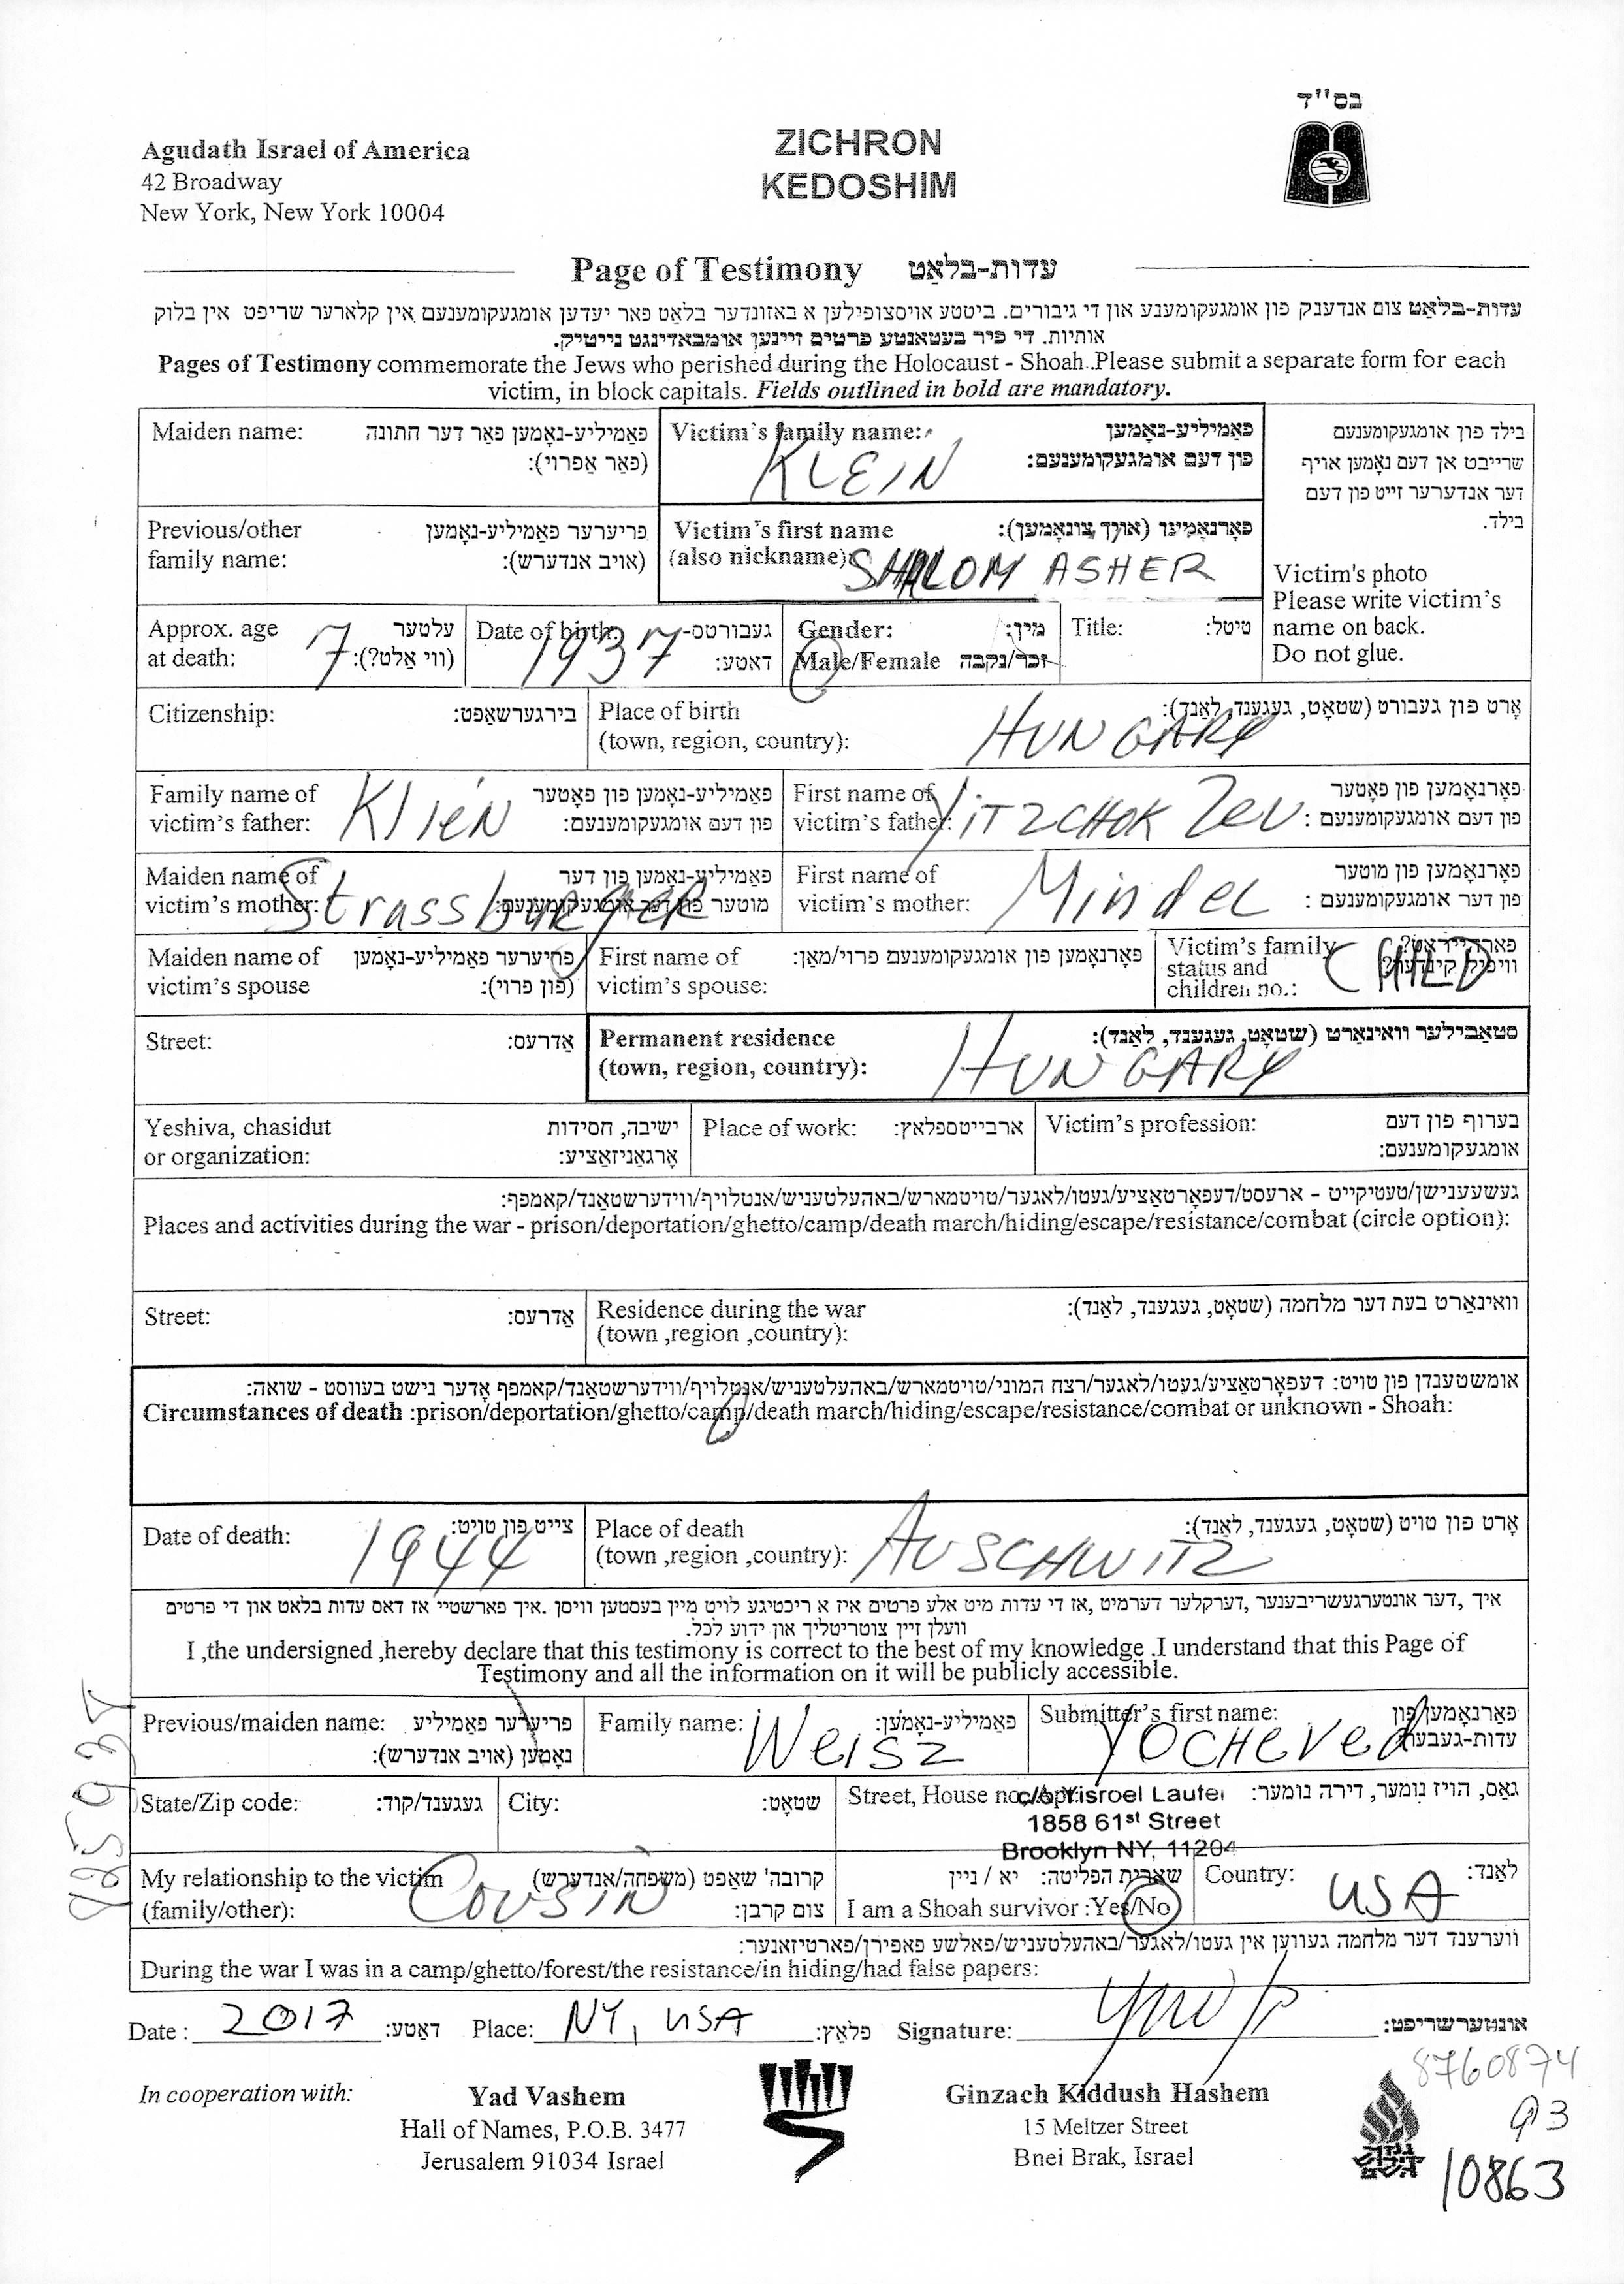 בס"ד
Agudath Israel of America
42 Broadway
New York, New York 10004
ZICHRON
KEDOSHIM
Page of Testimony עדות-בלאַט
עדות-בלאַט צום אנדענק פון אומגעקומענע און די גיבורים. ביטטע אויסצופילען א באזונדער בלאַט פאר יעדען אומגעקומענעם אין קלארער שריפט אין בלוק
אותיות. די פיר בעטאנטע פרטים זיינען אומבאדינגט נייטיק.
Pages of Testimony commemorate the Jews who perished during the Holocaust - Shoah. Please submit a separate form for each
victim, in block capitals. Fields outlined in bold are mandatory.
Maiden name: פאַמיליע-נאָמען פאַר דער חתונה
(פאַר אַפרוי):
Victim's family name: פאַמיליע-נאָמען
פון דעם אומגעקומענעם:
KLEIN
בילד פון אומגעקומענעם
שרייבט אן דעם נאָמען אויף
דער אנדערער זייט פון דעם
בילד.
Victim's photo
Please write victim's
name on back.
Do not glue.
Previous/other פריערער פאַמיליע-נאָמען
family name: (אויב אנדערש):
Victim's first name פאָרנאָמען (אויך צונאָמען):
(also nickname): SHALOM ASHER
Approx. age עלטער
at death: 7 (ווי אַלט?):
Date of birth: 1937 געבורטס-
דאַטע:
Gender: מין:
Male/Female זכר/נקבה
Title: טיטל:
Citizenship: בירגערשאַפט:
Place of birth אָרט פון געבורט (שטאָט, געגענד, לאַנד):
(town, region, country): HUNGARY
Family name of פאַמיליע-נאָמען פון פאָטער
victim's father: Klien פון דעם אומגעקומענעם:
First name of פאָרנאָמען פון פאָטער
victim's father: YITZCHOK Zev פון דעם אומגעקומענעם:
Maiden name of פאַמיליע-נאָמען פון דער
victim's mother: Strassburger
First name of פאָרנאָמען פון מוטער
victim's mother: Mindel פון דער אומגעקומענעם:
Maiden name of פריערער פאַמיליע-נאָמען
victim's spouse (פון פרוי):
First name of פאָרנאָמען פון אומגעקומענעם פרוי/מאַן:
victim's spouse:
Victim's family
status and CHILD
children no.:
Street: אַדרעס:
Permanent residence סטאַבילער וואוינאָרט (שטאָט, געגענד, לאַנד):
(town, region, country): HUNGARY
Yeshiva, chasidut ישיבה, חסידות
or organization: אָרגאַניזאַציע:
Place of work: ארבייטספלאַץ:
Victim's profession: בערוף פון דעם
אומגעקומענעם:
געשעענישן/טעטיקייט - ארעסט/דעפּאָרטאַציע/געטו/לאגער/טויטמארש/באהעלטעניש/אנטלויף/ווידערשטאַנד/קאמפף:
Places and activities during the war - prison/deportation/ghetto/camp/death march/hiding/escape/resistance/combat (circle option):
Street: אַדרעס:
Residence during the war וואוינאָרט בעת דער מלחמה (שטאָט, געגענד, לאַנד):
(town ,region ,country):
אומשטענדן פון טויט: דעפּאָרטאַציע/געטו/לאגער/רצח המוני/טויטמארש/באהעלטעניש/אנטלויף/ווידערשטאַנד/קאמפף אָדער נישט בעווסט - שואה:
Circumstances of death :prison/deportation/ghetto/camp/death march/hiding/escape/resistance/combat or unknown - Shoah:
Date of death: 1944 צייט פון טויט:
Place of death אָרט פון טויט (שטאָט, געגענד, לאַנד):
(town ,region ,country): AUSCHWITZ
איך ,דער אונטערגעשריבענער ,דערקלער דערמיט ,אז די עדות מיט אלע פרטים איז א ריכטיגע לויט מיין בעסטען וויסן .איך פארשטיי אז דאס עדות בלאט און די פרטים
וועלן זיין צוטריטליך און ידוע לכל.
I ,the undersigned ,hereby declare that this testimony is correct to the best of my knowledge .I understand that this Page of
Testimony and all the information on it will be publicly accessible.
Previous/maiden name: פריערער פאַמיליע
נאָמען (אויב אנדערש):
Family name: Weisz פאַמיליע-נאָמען:
Submitter's first name: פאָרנאָמען פון
YOCHEVED עדות-געבער
State/Zip code: געגענד/קוד:
City: שטאָט:
Street, House no./Apt: גאַס, הויז נומער, דירה נומער:
c/o Yisroel Laufer
1858 61st Street
Brooklyn NY, 11204
My relationship to the victim קרובה' שאַפט (משפחה/אנדערש)
(family/other): Cousin צום קרבן:
שארית הפליטה: יא / ניין
I am a Shoah survivor :Yes/No
Country: לאַנד:
USA
ווערענד דער מלחמה געווען אין געטו/לאגער/באהעלטעניש/פאלשע פאפירן/פארטיזאנער:
During the war I was in a camp/ghetto/forest/the resistance/in hiding/had false papers:
Date : 2017 דאַטע: Place: NY, USA פלאַץ: Signature: אונטערשריפט:
925937
In cooperation with:
Yad Vashem
Hall of Names, P.O.B. 3477
Jerusalem 91034 Israel
Ginzach Kiddush Hashem
15 Meltzer Street
Bnei Brak, Israel
8760874
93
10863